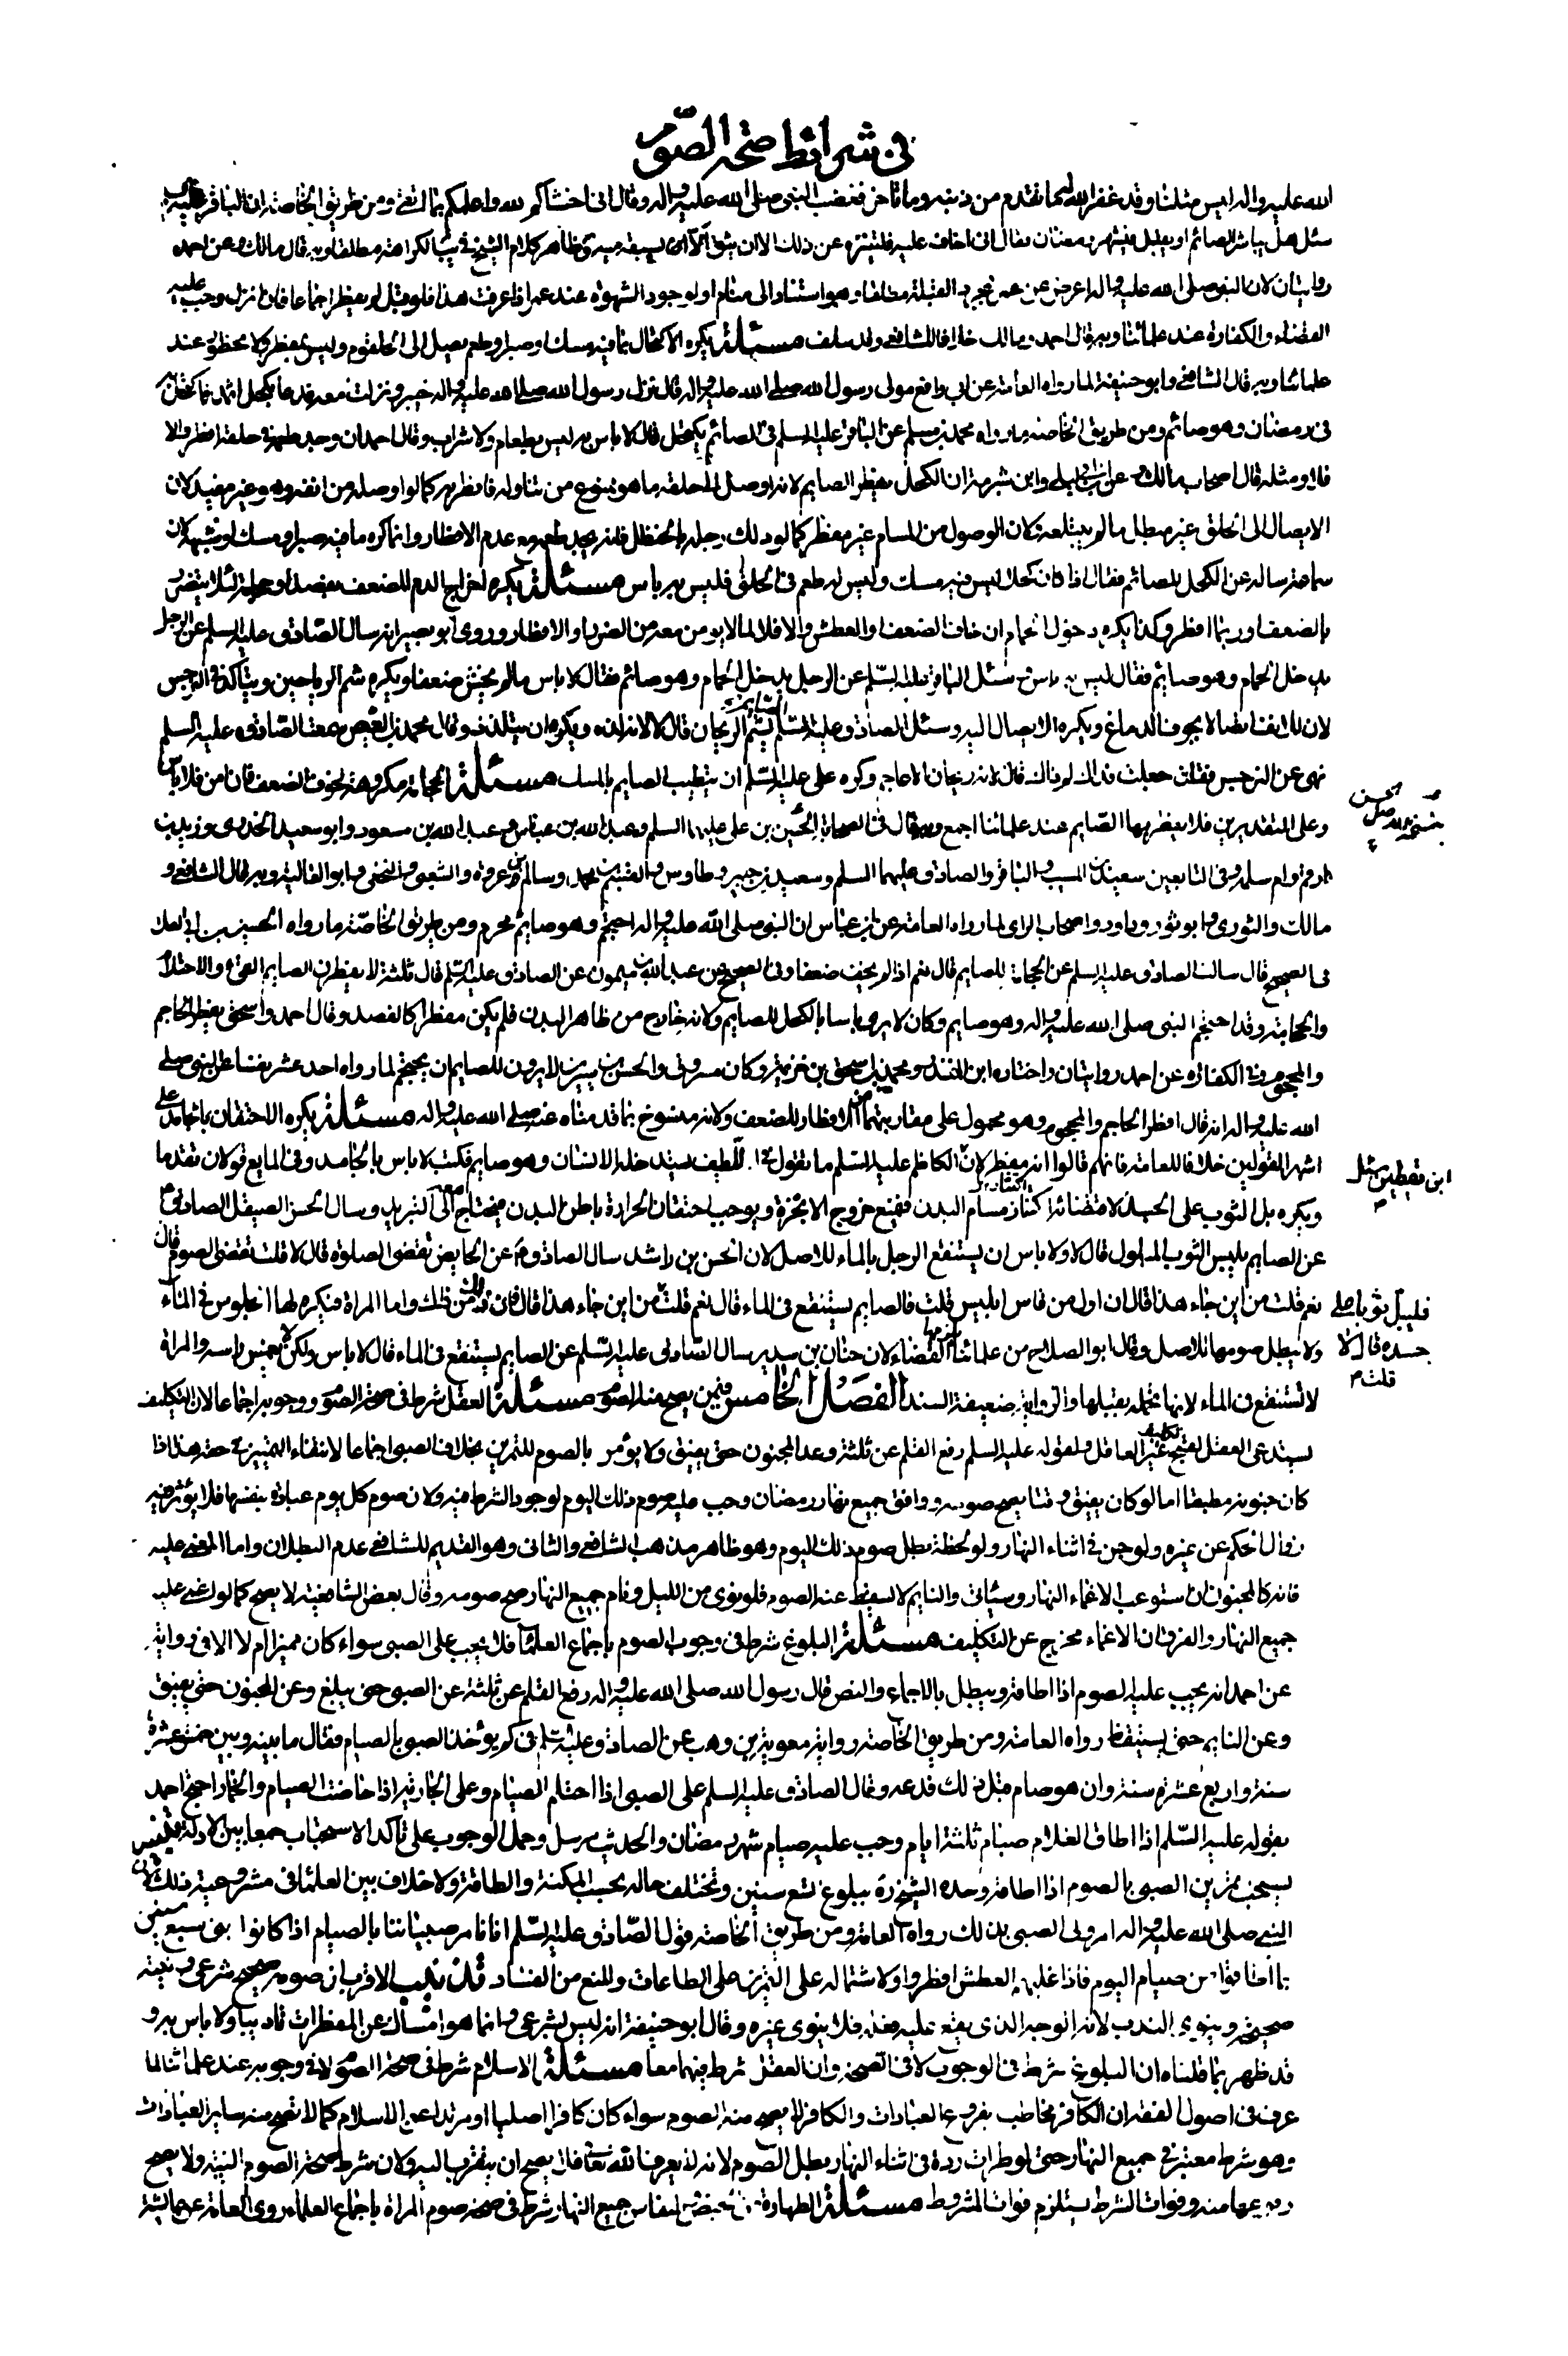 في شرائط صحة الصوم
الله عليه واله ليس مثلنا وقد غفر الله لك ما تقدم من ذنبه وما تأخر فغضب النبي صلى الله عليه واله وقال اني اخشاكم لله واعلمكم بما اتقي ومن طريق الخاصة ان الباقر عليه
سئل هل يباشر الصائم او يقبل في شهر رمضان فقال اني اخاف عليه فليتنزه عن ذلك الا ان يثق الا يسبقه منيه وظاهر كلام الشيخ في الكراهة مطلقا وبه قال مالك وعن احمد
روايتان لان النبي صلى الله عليه واله اعرض عن عمر القبلة مطلقا وهو استناد الى منام او لوجود الشهوة عند عمر اذا عرفت هذا فلو قبل لم يفطر اجماعا فان انزل وجب عليه
القضاء والكفارة عند علمائنا وبه قال احمد ومالك خلافا للشافعي وقد سلف مسئلة يكره الاكتحال بما فيه مسك او صبر او طعم يصل الى الحلقوم وليس بمفطر ولا محظور عند
علمائنا وبه قال الشافعي وابو حنيفة لما رواه العامة عن ابي رافع مولى رسول الله صلى الله عليه واله قال نزل رسول الله صلى الله عليه واله خيبر ونزلت معه فدعا بكحل اثمد فاكتحل به
في رمضان وهو صائم ومن طريق الخاصة ما رواه محمد بن مسلم عن الباقر عليه السلم في الصائم يكتحل قال لا باس به ليس بطعام ولا شراب وقال احمد ان وجد طعمه في حلقه افطر والا
فلا ومثله قال اصحاب مالك وعن ابن ابي ليلى وابن شبرمة ان الكحل يفطر الصايم لانه اوصل الى حلقه ما هو ممنوع من تناوله فافطر به كما لو اوصله من انفه وهو غير مفيد لان
الايصال الى الحلق غير مبطل ما لم يبتلعه ولان الوصول من المسام غير مفطر كما لو دلك رجله بالحنظل فانه يجد طعمه مع عدم الافطار وانما كره ما فيه صبر او مسك او شبهه لان
سماعة ساله عن الكحل للصائم فقال اذا كان كحلا ليس فيه مسك وليس له طعم في الحلق فليس به باس مسئلة يكره اخراج الدم للضعف بفصد او حجامة لئلا يتضرر
بالضعف او ربما افطر وكذا يكره دخول الحمام ان خاف الضعف او العطش والا فلا لما لا يومن معه من الضرر او الافطار وروى ابو بصير انه سال الصادق عليه السلم عن الرجل
يدخل الحمام وهو صايم فقال ليس به باس وسئل الباقر عليه السلم عن الرجل يدخل الحمام وهو صائم فقال لا باس ما لم يخش ضعفا ويكره شم الرياحين ويتأكد في النرجس
لان للانف اتصالا بجوف الدماغ ويكره الايصال اليه وسئل الصادق عليه السلم الصايم يشم الريحان قال لا لانه لذة ويكره ان يتلذذ وقال محمد بن العيص سمعت الصادق عليه السلم
نهى عن النرجس فقلت جعلت فداك لم ذاك قال لانه ريحان الاعاجم وكره علي عليه السلم ان يتطيب الصايم بالمسك مسئلة الحجامة مكروهة لخوف الضعف فان امن فلا باس
وعلى التقديرين فلا يفطر بها الصايم عند علمائنا اجمع وبه قال في الصحابة الحسين بن علي عليهما السلم وعبد الله بن عباس وعبد الله بن مسعود وابو سعيد الخدري وزيد بن
ارقم وام سلمة وفي التابعين سعيد بن المسيب والباقر والصادق عليهما السلم وسعيد بن جبير وطاوس والقسم بن محمد وسالم وعروة والشعبي والنخعي وابو العالية وبه قال الشافعي و
مالك والثوري وابو ثور وداود واصحاب الراي لما رواه العامة عن ابن عباس ان النبي صلى الله عليه واله احتجم وهو صايم محرم ومن طريق الخاصة ما رواه الحسين بن ابي العلا
في الصحيح قال سالت الصادق عليه السلم عن الحجامة للصايم قال نعم اذا لم يخف ضعفا وفي الصحيح عن عبد الله بن ميمون عن الصادق عليه السلم قال ثلثة لا يفطرن الصايم القيء والاحتلام
والحجامة وقد احتجم النبي صلى الله عليه واله وهو صايم وكان لا يرى باسا بالكحل للصايم ولانه خارج من ظاهر البدن فلم يكن مفطرا كالفصد وقال احمد واسحق يفطر الحاجم
والمحجوم وفي الكفارة عن احمد روايتان واختاره ابن المنذر ومحمد بن اسحق بن خزيمة وكان مسروق والحسن وابن سيرين لا يرون للصايم ان يحتجم لما رواه احد عشر نفسا عن النبي صلى
الله عليه واله انه قال افطر الحاجم والمحجوم وهو محمول على مقاربتهما من الافطار للضعف ولانه منسوخ بما قدمناه عنه صلى الله عليه واله مسئلة يكره الاحتقان بالجامد على
اشهر القولين خلافا للعامة فانهم قالوا انه مفطر لان الكاظم عليه السلم ما تقول في اللطيف يستدخله الانسان وهو صايم فكتب لا باس بالجامد وفي المايع قولان تقدما
ابن يقطين سئل
ويكره بل الثوب على الجسد لاقتضائه اكتناز مسام البدن فيمنع خروج الابخرة ويوجب احتقان الحرارة باطن البدن فيحتاج معه الى التبريد وسال الحسن الصيقل الصادق ع
عن الصايم يلبس الثوب المبلول قال لا ولا باس ان يستنقع الرجل بالماء للاصل لان الحسن بن راشد سال الصادق ع عن الحايض تقضي الصلوة قال لا قلت تقضي الصوم قال
نعم قلت من اين جاء هذا قال ان اول من قاس ابليس قلت فالصايم يستنقع في الماء قال نعم قلت من اين جاء هذا قال من ذلك واما المراة فيكره لها الجلوس في الماء
فليبل ثوبا على
جسده قال لا
قلت م
ولا يبطل صومها للاصل وقال ابو الصلاح من علمائنا يلزمها القضاء لان حنان بن سدير سال الصادق عليه السلم عن الصايم يستنقع في الماء قال لا باس ولكن لا يغمس راسه والمراة
لا تستنقع في الماء لانها تحمله بقبلها والرواية ضعيفة السند الفصل الخامس فيمن يصح منه الصوم مسئلة العقل شرط في صحة الصوم ووجوبه اجماعا لان التكليف
يستدعي العقل لقبح تكليف غير العاقل ولقوله عليه السلم رفع القلم عن ثلثة وعد المجنون حتى يفيق ولا يؤمر بالصوم للتمرين بخلاف الصبي اجماعا لانتفاء التمييز في حقه هذا اذا
كان جنونه مطبقا اما لو كان يفيق وقتا يصح صومه ووافق جميع نهار رمضان وجب عليه صوم ذلك اليوم لوجود الشرط فيه ولان صوم كل يوم عبادة بنفسها فلا يؤثر فيه
زوال الحكم عن غيره ولو جن في اثناء النهار ولو لحظة بطل صوم ذلك اليوم وهو ظاهر مذهب الشافعي والثاني وهو القديم للشافعي عدم البطلان واما المغمى عليه
فانه كالمجنون ان استوعب الاغماء النهار وسيأتي والنايم لا يسقط عنه الصوم فلو نوى من الليل ونام جميع النهار صح صومه وقال بعض الشافعية لا يصح كما لو اغمي عليه
جميع النهار والفرق ان الاغماء مخرج عن التكليف مسئلة البلوغ شرط في وجوب الصوم باجماع العلماء فلا يجب على الصبي سواء كان مميزا ام لا الا في رواية
عن احمد انه يجب عليه الصوم اذا اطاقه ويبطل بالاجماع والنص قال رسول الله صلى الله عليه واله رفع القلم عن ثلثة عن الصبي حتى يبلغ وعن المجنون حتى يفيق
وعن النايم حتى يستيقظ رواه العامة ومن طريق الخاصة رواية معوية بن وهب عن الصادق عليه السلم في كم يؤخذ الصبي بالصيام فقال ما بينه وبين خمس عشرة
سنة واربع عشرة سنة وان هو صام قبل ذلك فدعه وقال الصادق عليه السلم على الصبي اذا احتلم الصيام وعلى الجارية اذا حاضت الصيام والخمار احتج احمد
بقوله عليه السلم اذا اطاق الغلام صيام ثلثة ايام وجب عليه صيام شهر رمضان والحديث مرسل وحمل الوجوب على تاكد الاستحباب جمعا بين الادلة
يستحب تمرين الصبي بالصوم اذا اطاقه وحده الشيخ ره ببلوغ تسع سنين وتختلف حاله بحسب المكنة والطاقة ولا خلاف بين العلماء في مشروعية ذلك لان
النبي صلى الله عليه واله امر ولي الصبي بذلك رواه العامة ومن طريق الخاصة قول الصادق عليه السلم انا نامر صبياننا بالصيام اذا كانوا بني سبع سنين
بما اطاقوا من صيام اليوم فاذا غلبهم العطش افطروا ولاشتماله على التمرن على الطاعات والمنع من الفساد تذنيب الاقرب ان صومه صحيح شرعي ونيته
صحيحة وينوي الندب لانه الوجه الذي يقع عليه فعله فلا ينوي غيره وقال ابو حنيفة انه ليس بشرعي وانما هو امساك عن المفطرات تاديبا ولا باس به و
قد ظهر بما قلناه ان البلوغ شرط في الوجوب لا في الصحة وان العقل شرط فيهما معا مسئلة الاسلام شرط في صحة الصوم لا في وجوبه عند علمائنا لما
عرف في اصول الفقه ان الكافر مخاطب بفروع العبادات والكافر لا يصح منه الصوم سواء كان كافرا اصليا او مرتدا عن الاسلام كما لا تصح منه ساير العبادات
وهو شرط معتبر في جميع النهار حتى لو طرات ردة في اثناء النهار بطل الصوم لانه لا يعرف الله تعالى فلا يصح ان يتقرب اليه ولان شرط صحة الصوم النية ولا يصح
وقوعها منه وفوات الشرط يستلزم فوات المشروط مسئلة الطهارة من الحيض والنفاس جميع النهار شرط في صحة صوم المراة باجماع العلماء روى العامة عن عايشة